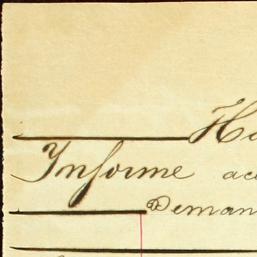 Ha
Informe ace
Deman